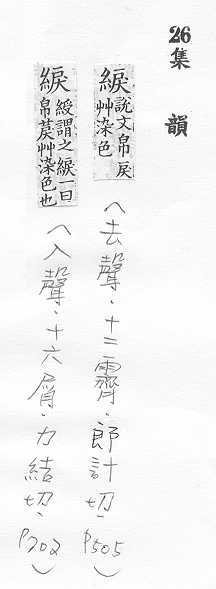 26集 韻
綟說文帛戾艸染色
(去聲.十二霽.郎計切.P505)
綟綬謂之綟一曰帛莀艸染色也
(入聲.十六屑.力結切.P702)